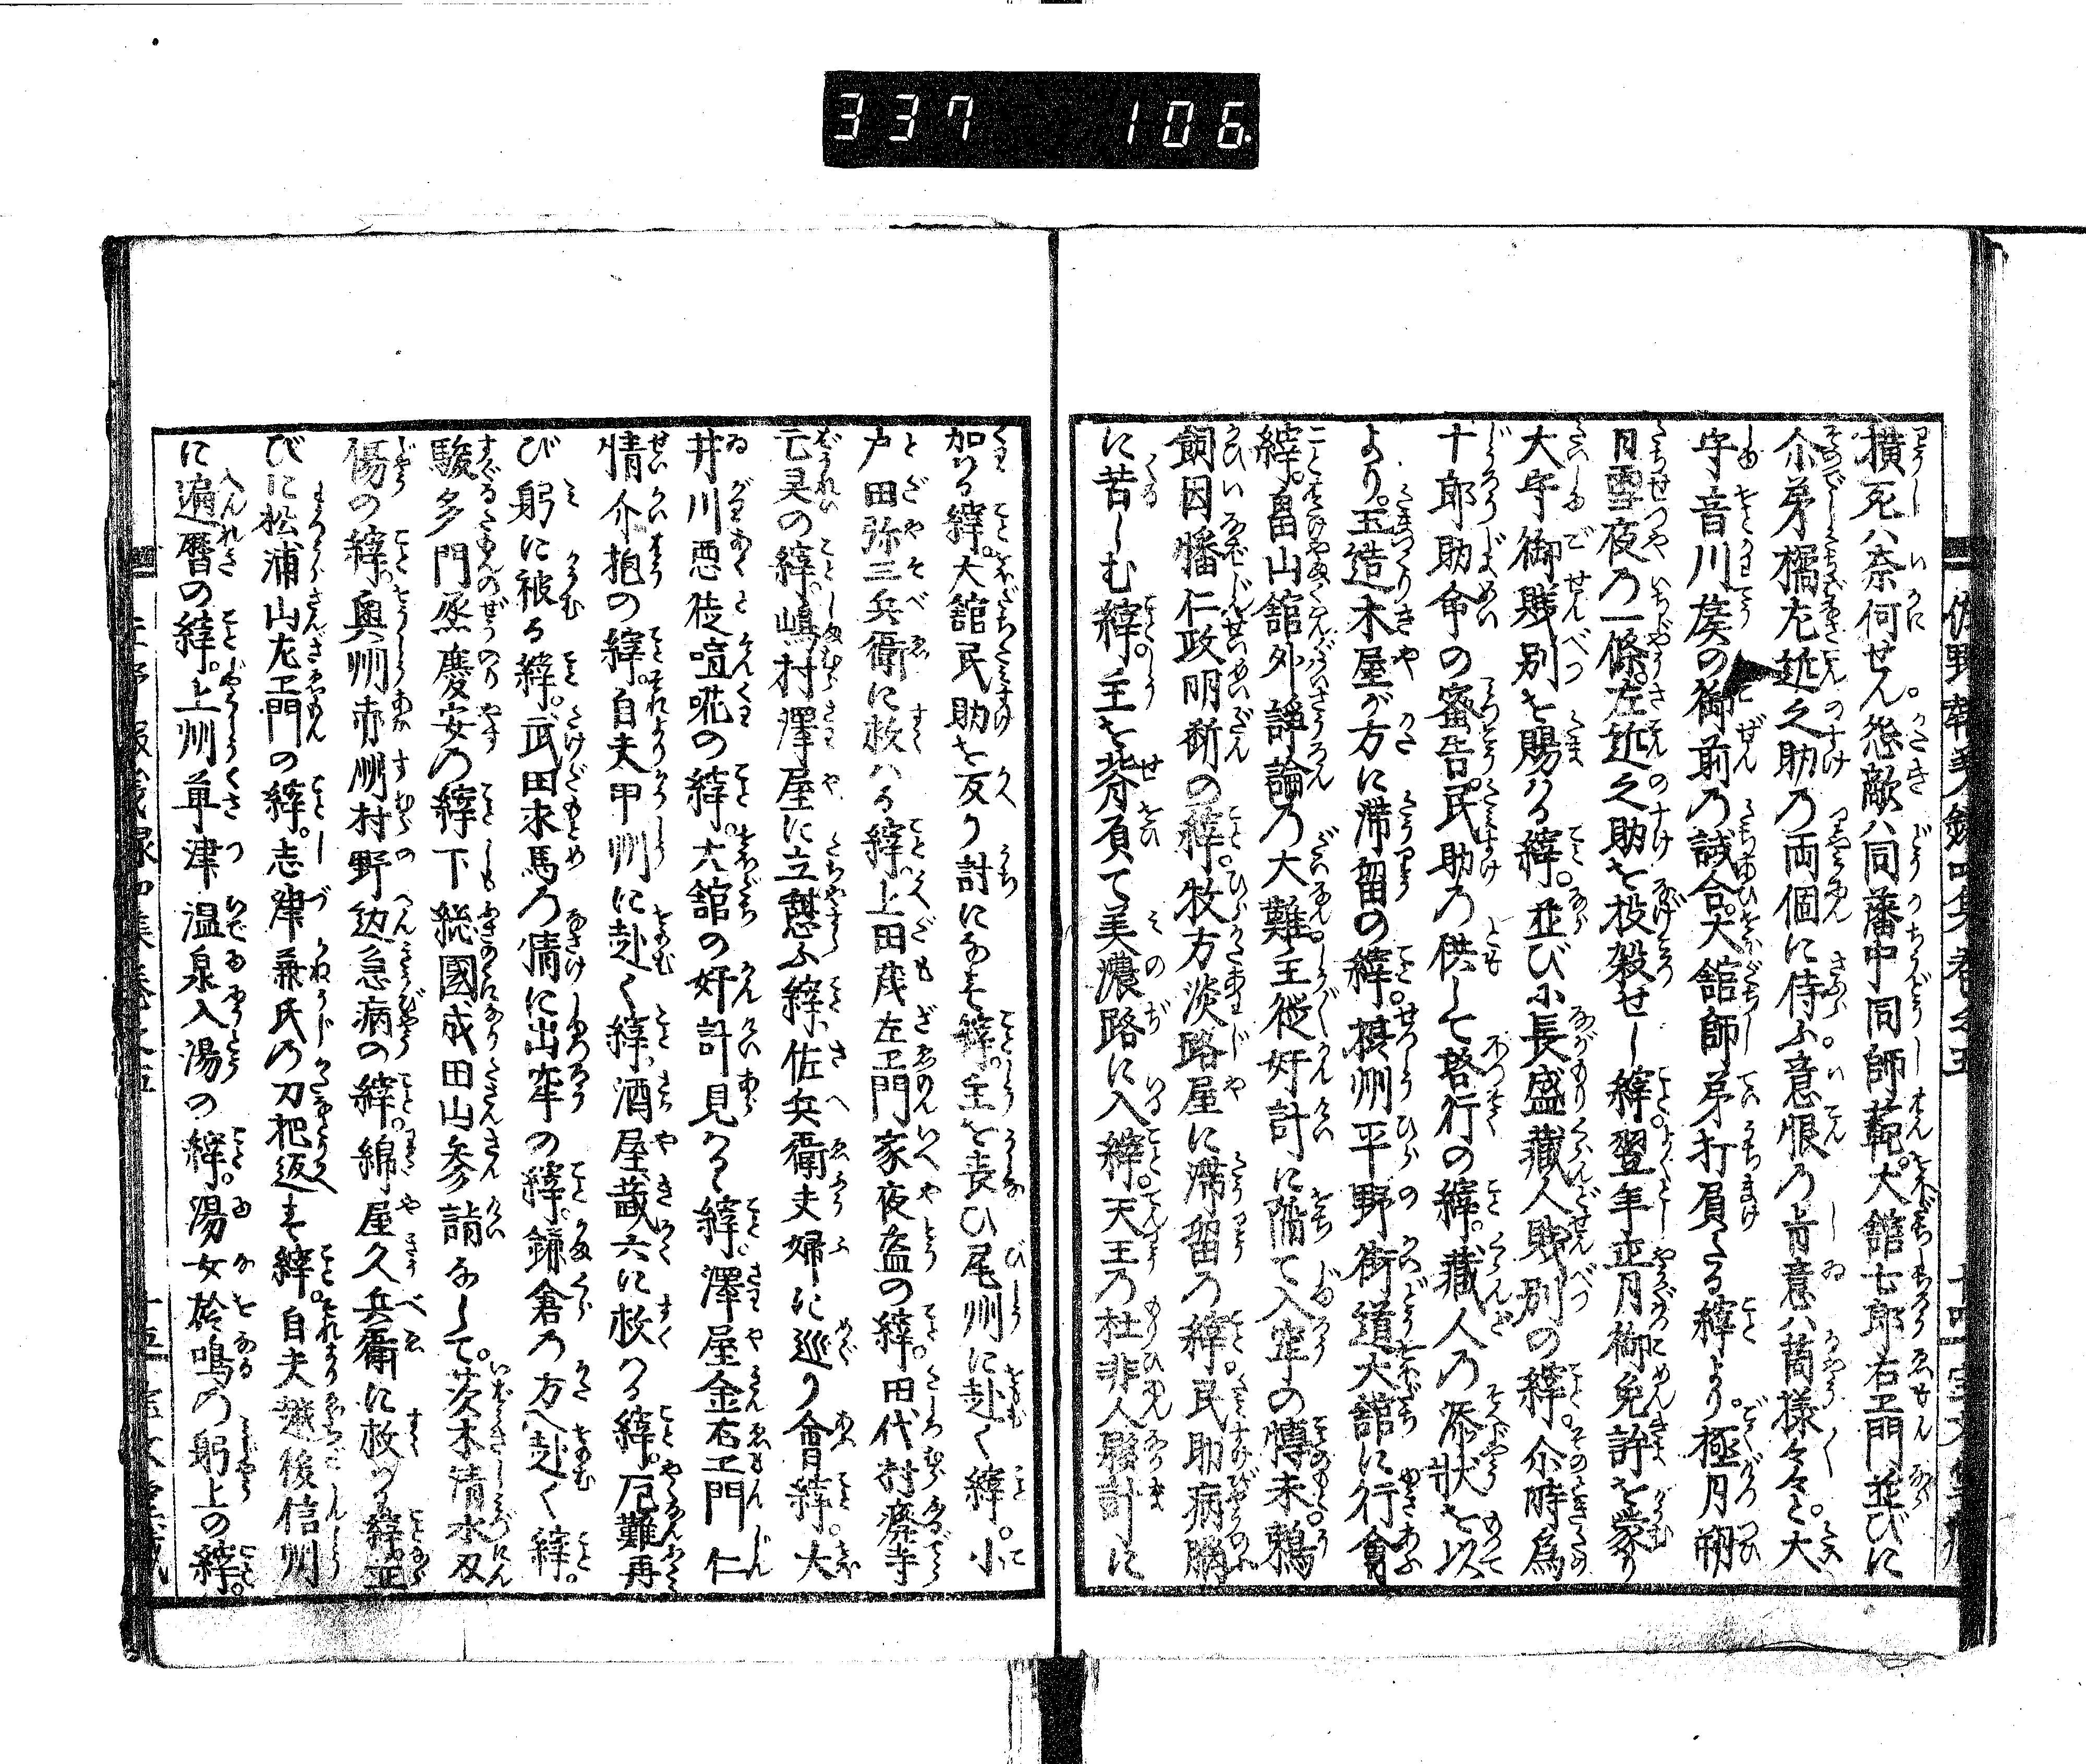 337 106
横死ハ奈何せん。怨敵ハ同藩中同師範。大舘七郎右エ門並びに
尓弟橘左近之助乃両個に侍ふ。意恨乃旨意ハ箇様々々と。大
守音川矦の御前乃試合。大舘師弟打負たる縡より。極月朔
日雪夜乃一條。左近之助を投殺せし縡。翌年正月御免許を蒙り
大守御賤別を賜ハる縡。並び小長盛蔵人賤別の縡。尓時為
十郎助命の蜜告。民助乃供して啓行の縡。蔵人乃添状を以
より。玉造木屋が方に滞留の縡。摂州平野街道大舘に行會
縡。畠山舘外諍論乃大難。主従奸計に陥て入牢の愽未。鵜
飼因幡仁政明断の縡。牧方淡路屋に滞留乃縡。民助病脳
に苦しむ縡。主を背負て美濃路に入縡。天王乃杜非人夥計に
加ハる縡。大舘民助を反り討になす縡。主を喪ひ尾州に赴く縡。小
戸田弥三兵衛に救ハる縡。上田茂左エ門家夜盗の縡。田代村癈寺
亡㚑の縡。嶋村澤屋に立憩ふ縡。佐兵衛夫婦に巡り會縡。大
井川悪徒喧嘩の縡。大舘の奸計見るゝ縡。澤屋金右エ門仁
情介抱の縡。自夫甲州に赴く縡。酒屋蔵六に救ハる縡。厄難再
び躬に被る縡。武田求馬乃情に出牢の縡。鎌倉乃方へ赴く縡。
駿多門烝慶安乃縡下総國成田山参詣なして。茨木清水刄
傷の縡。奥州赤渕村野辺急病の縡。綿屋久兵衛に救ハる縡。並
びに松浦山左エ門の縡。志津兼氏乃刀把返す縡。自夫越後信州
に遍暦の縡。上州草津温泉入湯の縡。湯女於鳴の躬上の縡。